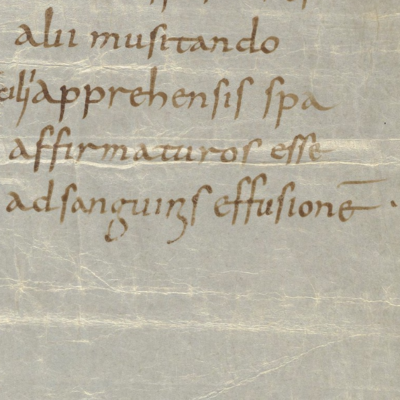 alii musitando
apprehensis spa
affirmaturos esse
adsanguinis effusionē.